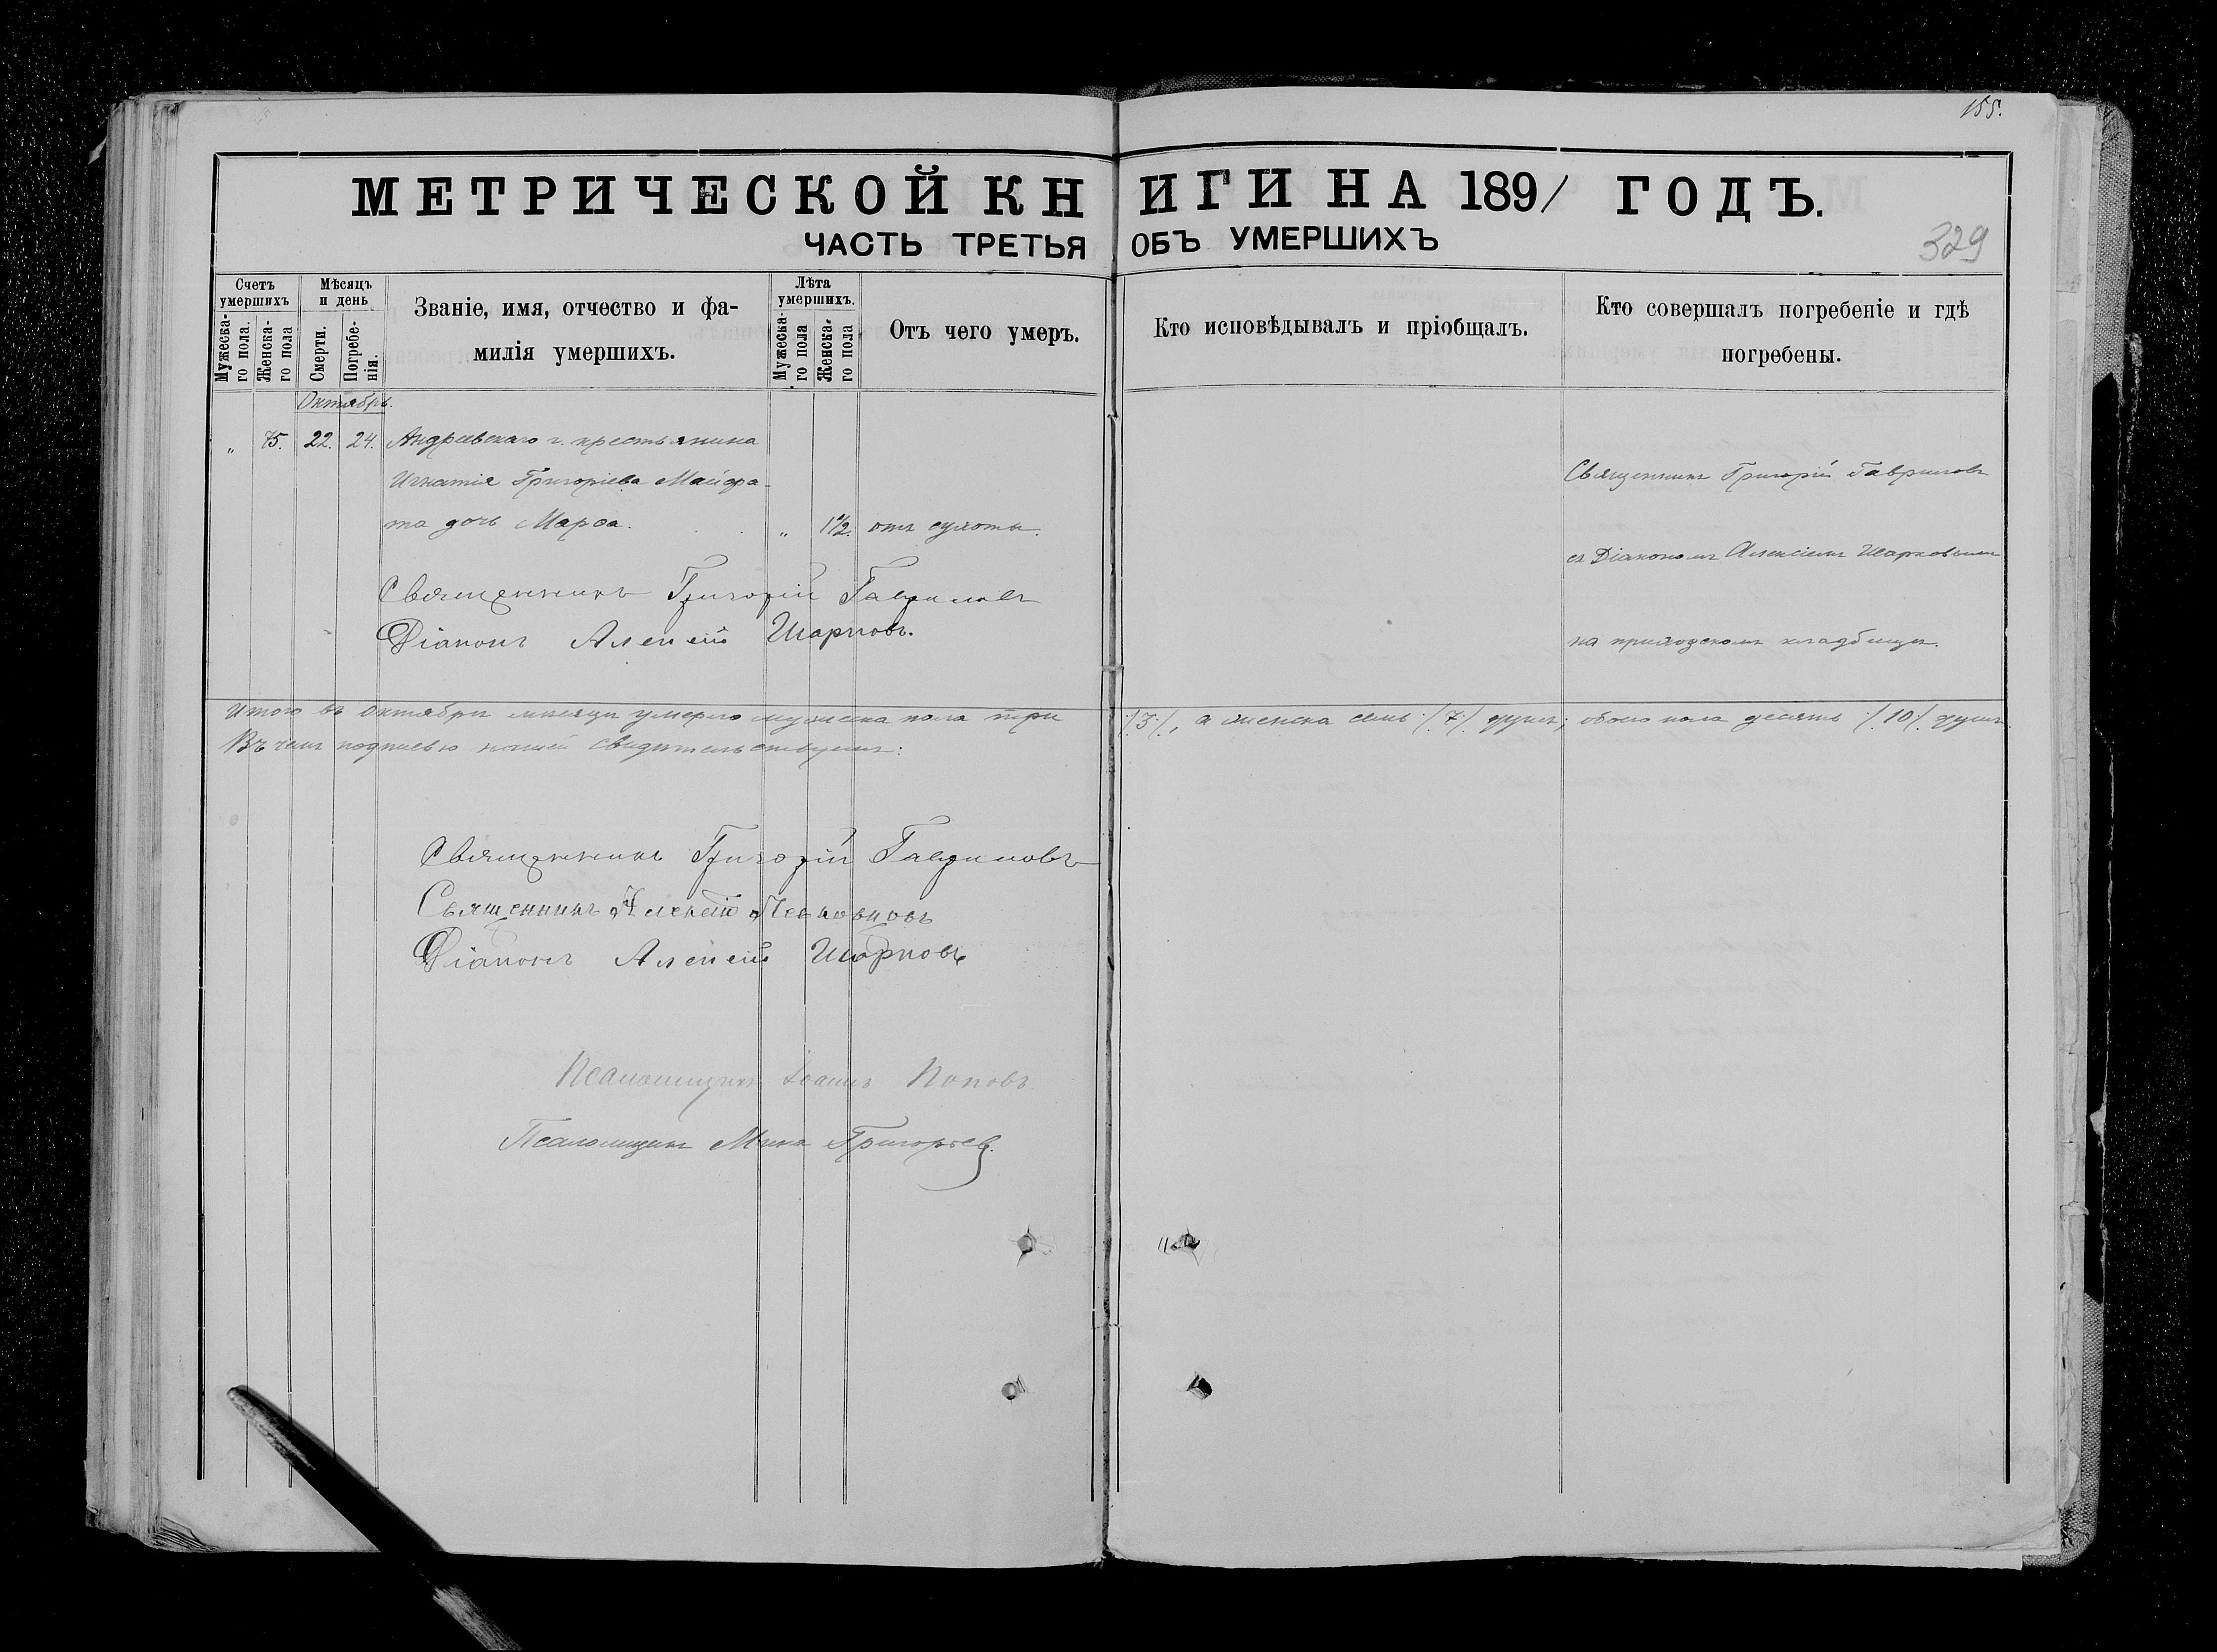 155.
МЕТРИЧЕСКОЙ КНИГИ НА 1891 ГОДЪ.
ЧАСТЬ ТРЕТЬЯ ОБЪ УМЕРШИХЪ
329
Счетъ умершихъ
Мужеска-го пола.
Женска-го пола
Мѣсяцъ и день
Смерти.
Погребе-нія.
Званіе, имя, отчество и фа-
милія умершихъ.
Лѣта умершихъ.
Мужеска-го пола
Женска-го пола
Отъ чего умеръ.
Кто исповѣдывалъ и пріобщалъ.
Кто совершалъ погребеніе и гдѣ
погребены.
Октябрь.
„ 75. 22. 24. Андреевскаго г. крестьянина
Игнатія Григоріева
та дочь Марѳа. „ 1½. отъ сухоты.
Священникъ Григорій Гавриловъ
съ Діакономъ Алексіемъ Шарковымъ
на приходскомъ кладбищѣ.
Священникъ Григорій Гавриловъ
Діаконъ Алексій Шарковъ.
Итого въ Октябрѣ мѣсяцѣ умерло мужеска пола три /3/, а женска семь /7/ душъ; обоего пола десять /10/ душъ
Въ чемъ подписью нашей свидѣтельствуемъ:
Священникъ Григорій Гавриловъ
Священникъ Алексій
Діаконъ Алексій Шарковъ
Псаломщикъ Іоаннъ Поповъ
Псаломщикъ Мина Григорьевъ.